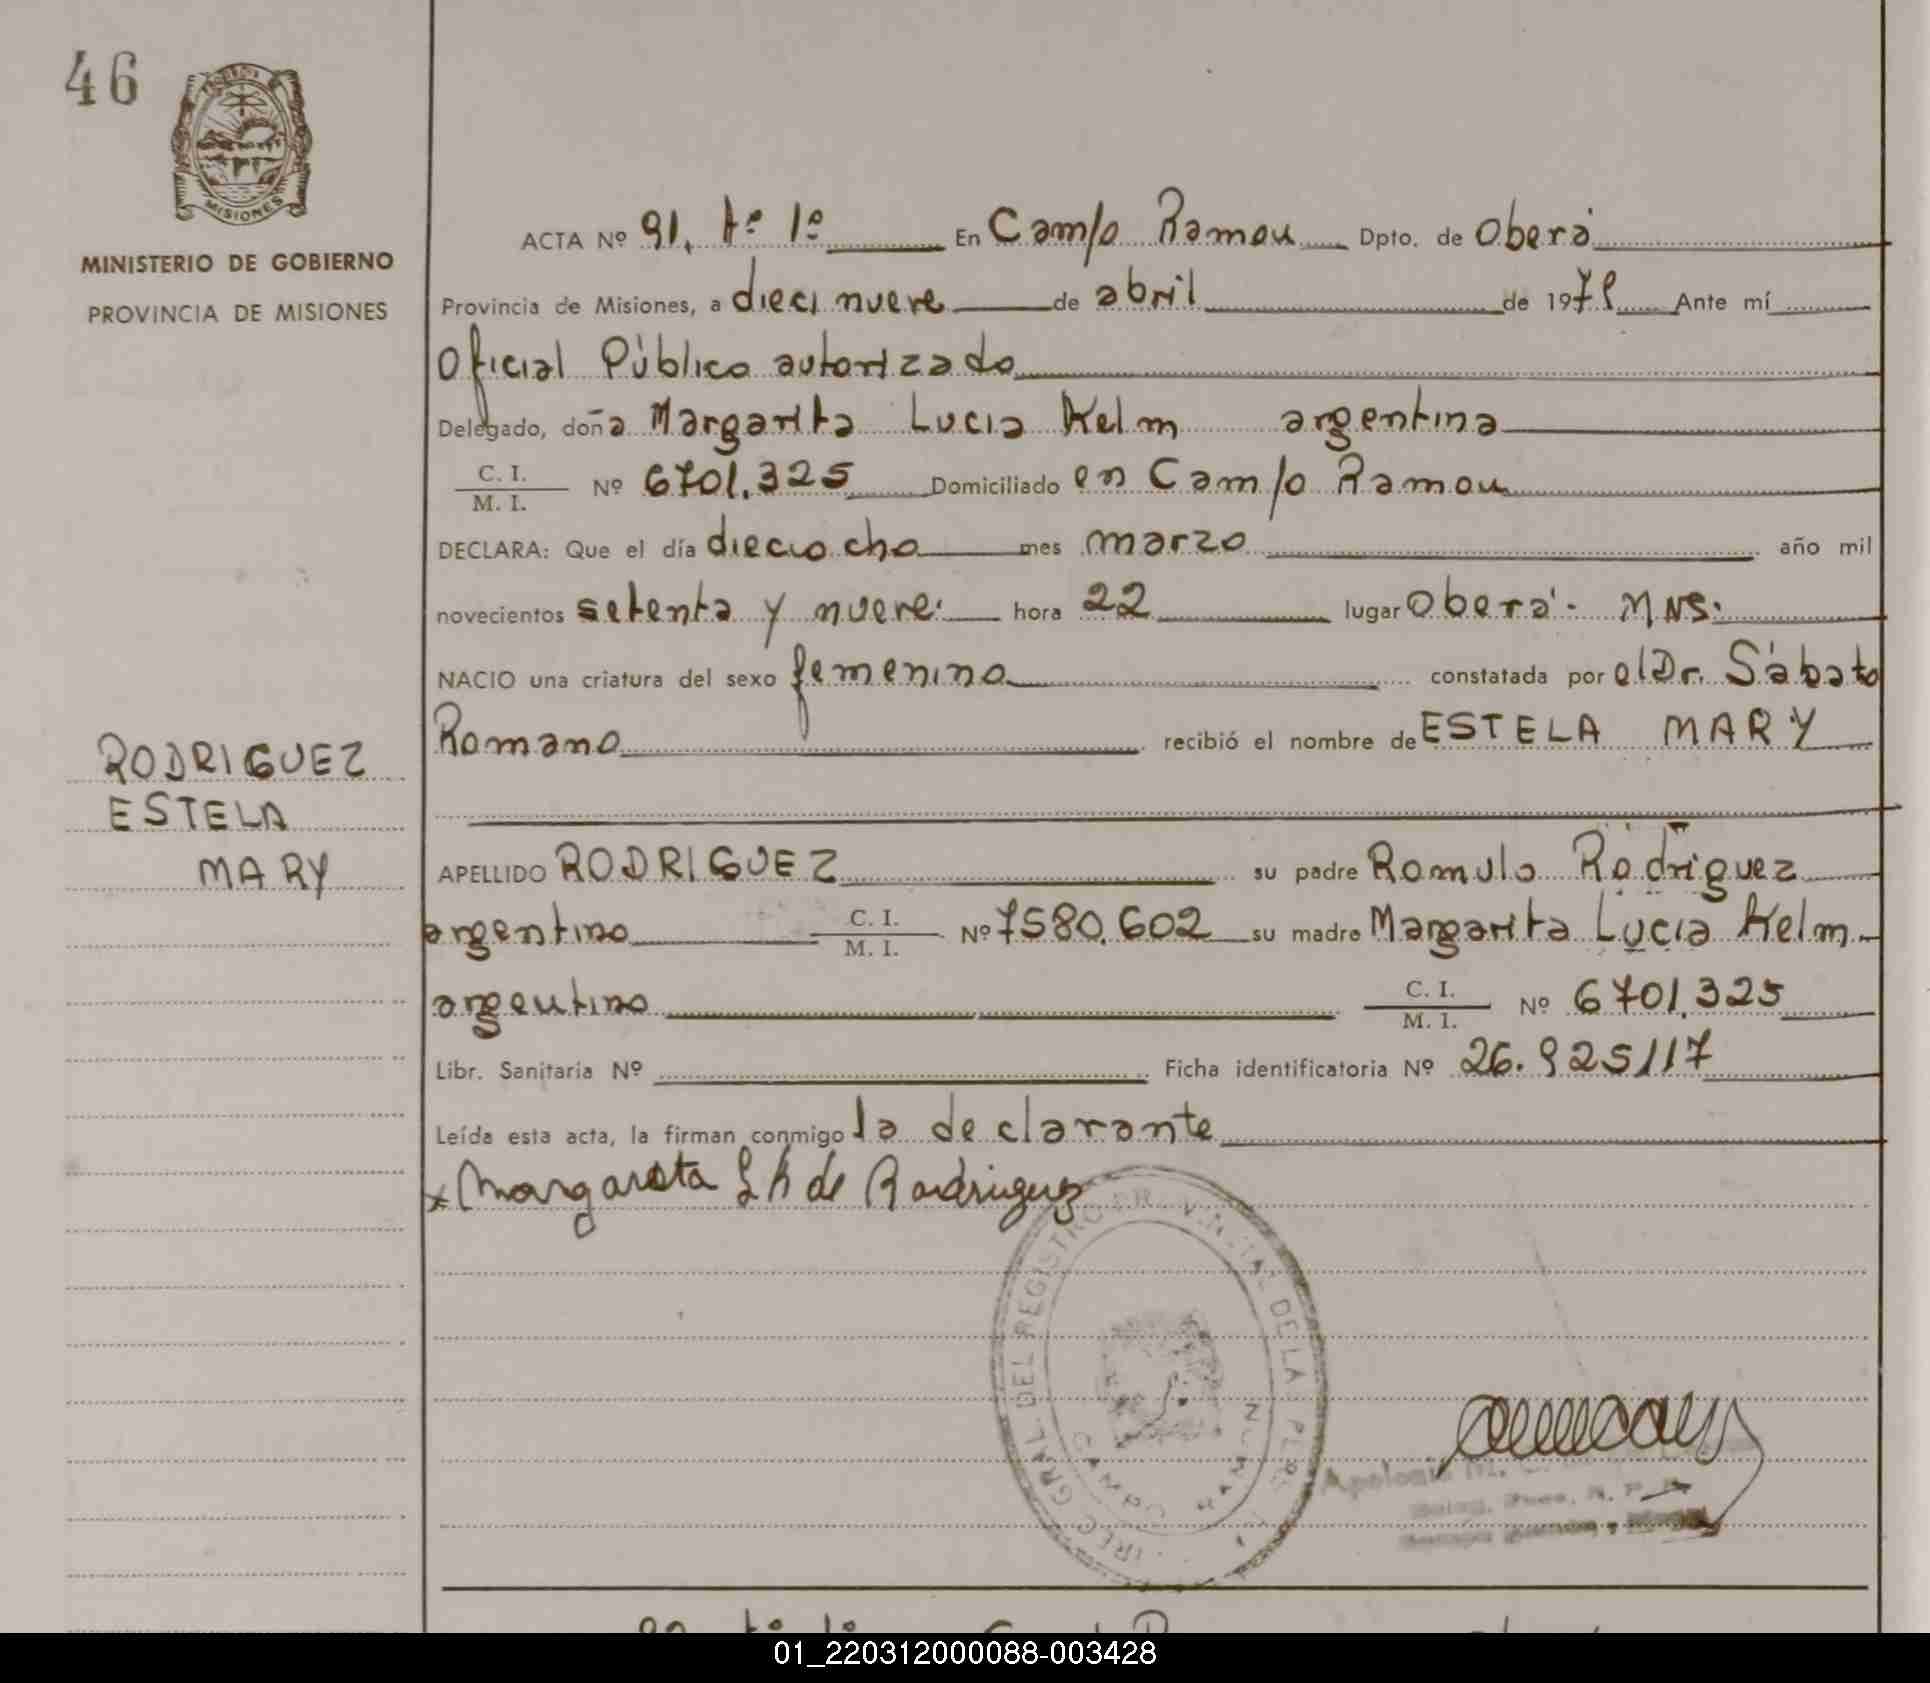 46
MISIONES
MINISTERIO DE GOBIERNO
PROVINCIA DE MISIONES
ACTA Nº 91. tº 1º En Campo Ramon Dpto. de Oberá
Provincia de Misiones, a dieci nueve de abril de 1979 Ante mí
Oficial Público autorizado
Delegado, doña Margarita Lucia Kelm argentina
C. I.
M. I. Nº 6701.325 Domiciliado en Campo Ramon
DECLARA: Que el día dieciocho mes marzo año mil
novecientos setenta y nueve. hora 22 lugar Oberá - MNS.
NACIO una criatura del sexo femenino constatada por el Dr. Sábato
Romano recibió el nombre de ESTELA MARY
RODRIGUEZ
ESTELA
MARY
APELLIDO RODRIGUEZ su padre Romulo Rodriguez
argentino C. I.
M. I. Nº 7580.602 su madre Margarita Lucia Kelm
argentino C. I.
M. I. Nº 6701.325
Libr. Sanitaria Nº Ficha identificatoria Nº 26.925117
Leída esta acta, la firman conmigo la declarante
x Margarita L K de Rodriguez
GRAL DEL REGISTRO DE LA
CAMPO RAMON
01_220312000088-003428